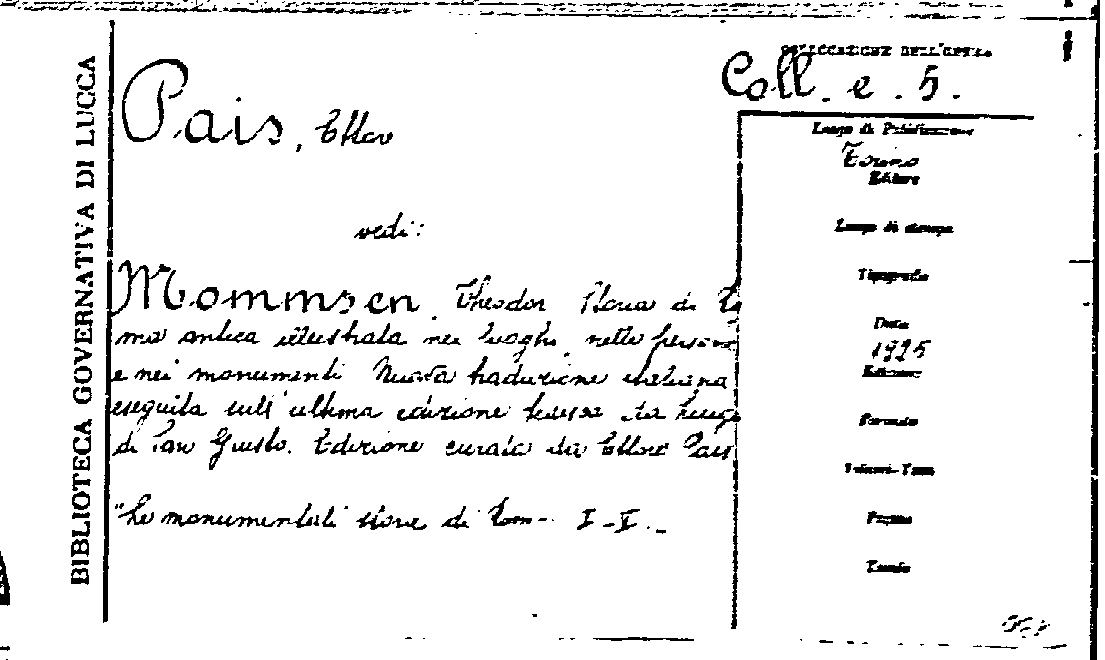 BIBLIOTECA GOVERNATIVA DI LUCCA
COLLOCAZIONE DELL'OPERA
Coll. e. 5.
Pais, Ettore
vedi:
Mommsen, Theodor Storia di Ro
ma antica illustrata nei luoghi, nelle persone
e nei monumenti Nuova traduzione italiana
eseguita sull'ultima edizione tedesca da Luigi
di San Giusto. Edizione curata da Ettore Pais
"Le monumentali storie di Rom- I-V._
Luogo di Pubblicazione
Torino
Editore
Luogo di stampa
Tipografia
Data
1925
Edizione
Formato
Volumi-Tomi
Pagine